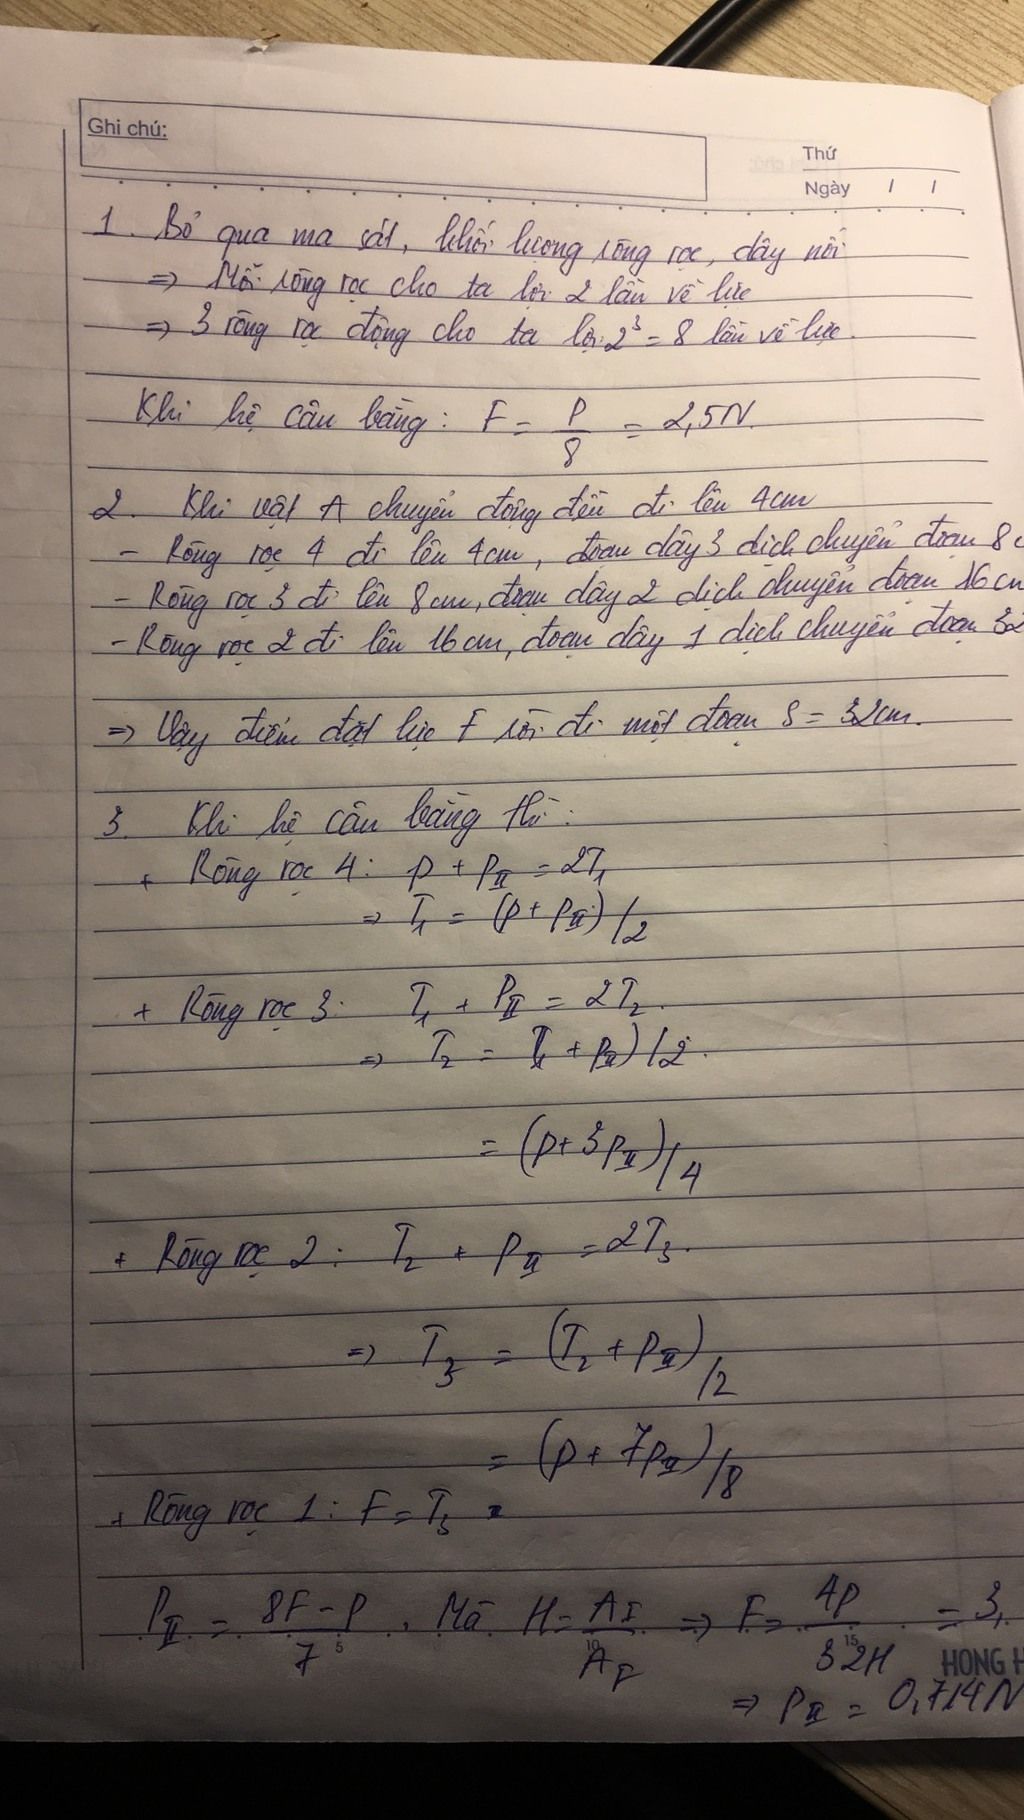 Ghi chú:
Thứ
Ngày / /
1. Bỏ qua ma sát, khối lượng ròng rọc, dây nối
=> Mỗi ròng rọc cho ta lợi 2 lần về lực
=> 3 ròng rọc động cho ta lợi 2³ = 8 lần về lực.
Khi hệ cân bằng: F = P/8 = 2,5N.
2. Khi vật A chuyển động đều đi lên 4cm
- Ròng rọc 4 đi lên 4cm, đoạn dây 3 dịch chuyển đoạn 8c
- Ròng rọc 3 đi lên 8cm, đoạn dây 2 dịch chuyển đoạn 16cm
- Ròng rọc 2 đi lên 16cm, đoạn dây 1 dịch chuyển đoạn 32
=> Vậy điểm đặt lực F dời đi một đoạn S = 32cm.
3. Khi hệ cân bằng thì:
+ Ròng rọc 4: P + P_II = 2T₁
=> T₁ = (P + P_II)/2
+ Ròng rọc 3: T₁ + P_II = 2T₂.
=> T₂ = T₁ + P_II)/2.
= (P + 3P_II)/4
+ Ròng rọc 2: T₂ + P_II = 2T₃.
=> T₃ = (T₂ + P_II)/2
= (P + 7P_II)/8
+ Ròng rọc 1: F = T₃
P_II = (8F - P)/7. Mà H = A_I/A_F => F = 4P/32H = 3,
5 10 15 HONG H
=> P_II = 0,714N